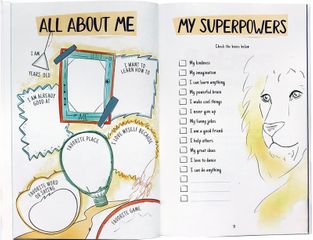 ALL ABOUT ME
I AM
YEARS OLD
I WANT TO
LEARN HOW TO
I AM ALREADY
GOOD AT
ME
FAVORITE PLACE
I LOVE MYSELF BECAUSE
FAVORITE WORD
OR SAYING
FAVORITE GAME
MY SUPERPOWERS
Check the boxes below
My kindness
My imagination
I can learn anything
My powerful brain
I make cool things
I never give up
My funny jokes
I am a good friend
I help others
My great ideas
I love to dance
I can do anything